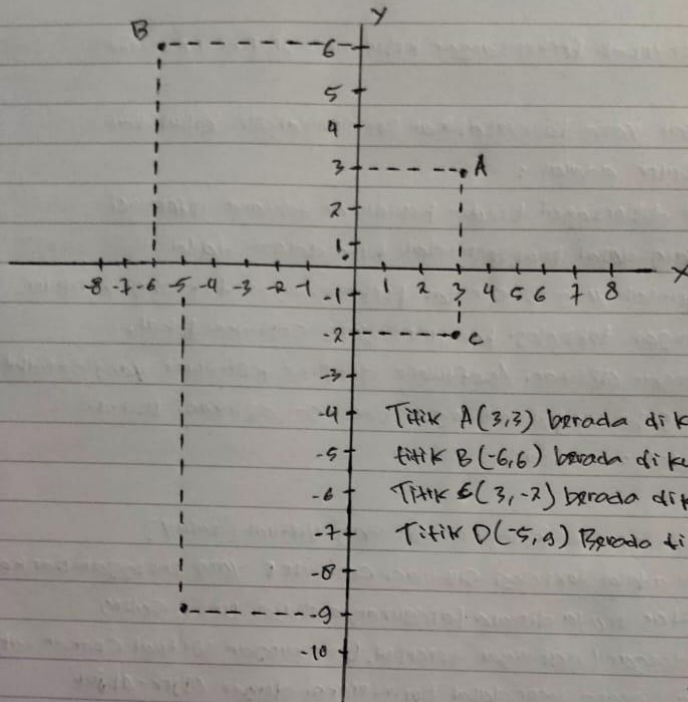 Y
B
6
5
4
3 A
2
1
-8 -7 -6 -5 -4 -3 -2 -1 1 2 3 4 5 6 7 8 X
-1
-2 C
-3
-4 Titik A(3,3) berada di k
-5 titik B(-6,6) berada di ku
-6 Titik C(3,-2) berada di k
-7 Titik D(-5,9) Berada di
-8
-9
-10